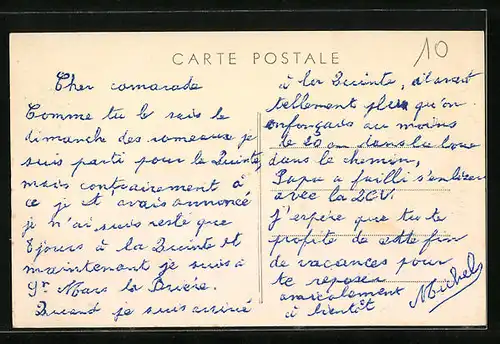 CARTE POSTALE
10
Cher camarade
Comme tu le sais le
dimanche des rameaux je
suis parti pour la Quinte,
mais contrairement à
ce je t avais annoncé
je n'ai suis resté que
8 jours à la Quinte et
maintenant je suis à
St Mars la Brière.
Quand je suis arrivé
à la Quinte, il avait
tellement plu qu'on
enfonçais au moins
de 20 cm dans la boue
dans le chemin,
Papa a failli s'enliser
avec la 2CV.
J'espère que tu te
profite de cette fin
de vacances pour
te reposer
amicalement
à bientôt
Michel